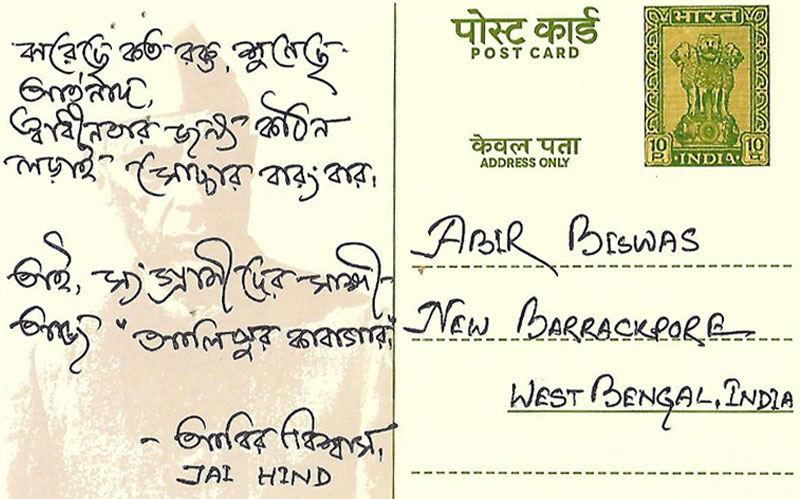 ঝরেছে কত রক্ত, শুনেছে
আর্তনাদ,
স্বাধীনতার জন্য কঠিন
লড়াই সোচ্চার বারংবার।
তাই, সংগ্রামীদের সাক্ষী
আজও "আলিপুর কারাগার"
- আবির বিশ্বাস,
JAI HIND
पोस्ट कार्ड
POST CARD
भारत
10 P INDIA 10 P
केवल पता
ADDRESS ONLY
ABIR BISWAS
NEW BARRACKPORE
WEST BENGAL, INDIA